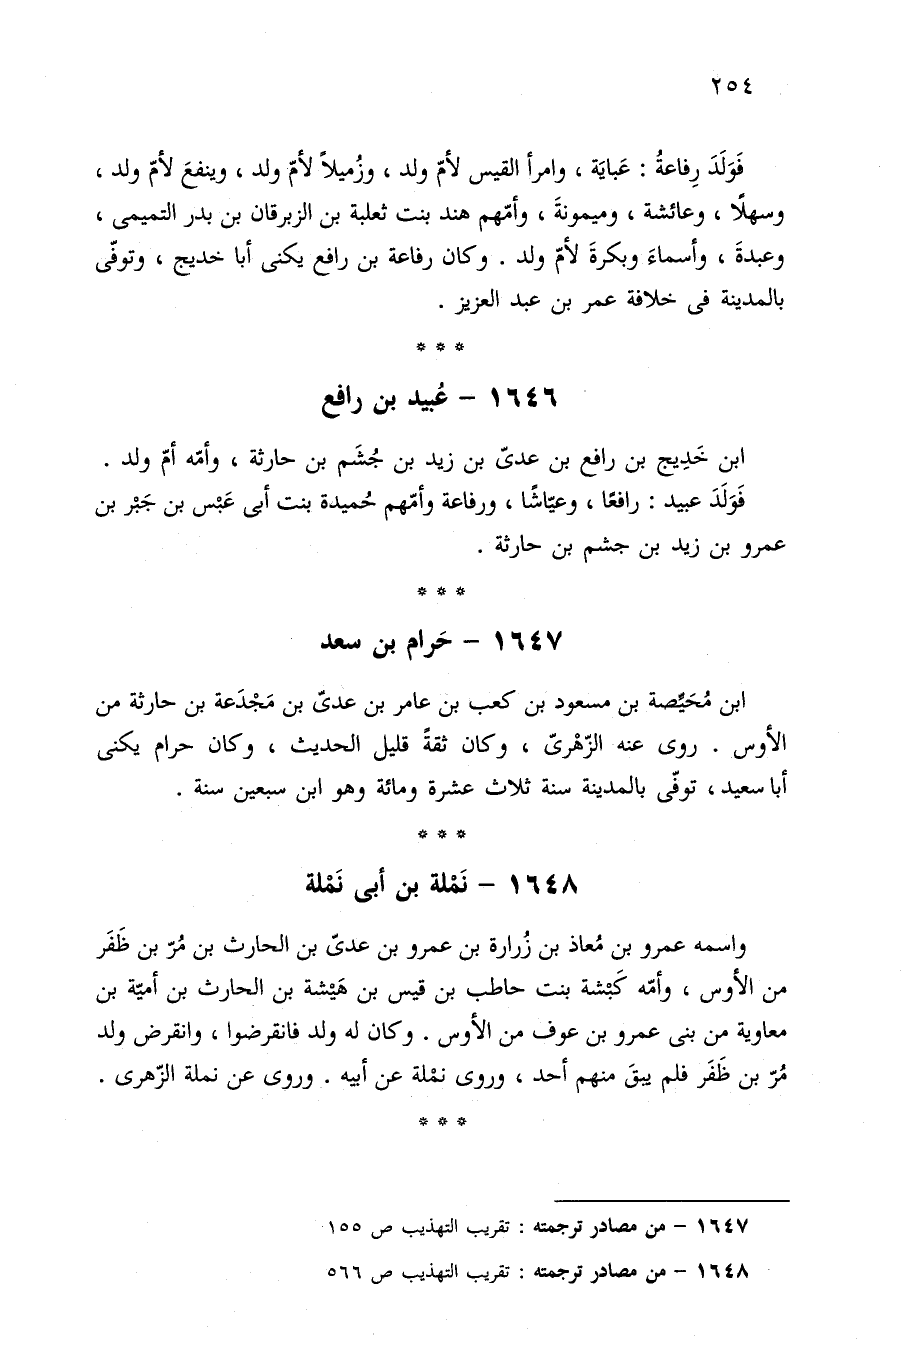 ٢٥٤
فَوَلَدَ رِفاعةُ : عَبايَة ، وامرأ القيس لأمّ ولد ، وزُميلاً لأمّ ولد ، وينفعَ لأمّ ولد ،
وسهلًا ، وعائشة ، وميمونةَ ، وأمّهم هند بنت ثعلبة بن الزبرقان بن بدر التميمى ،
وعبدةَ ، وأسماءَ وبكرةَ لأمّ ولد . وكان رفاعة بن رافع يكنى أبا خديج ، وتوفّى
بالمدينة فى خلافة عمر بن عبد العزيز .
* * *
١٦٤٦ – عُبيد بن رافع
ابن خَدِيج بن رافع بن عدىّ بن زيد بن جُشَم بن حارثة ، وأمّه أمّ ولد .
فَوَلَدَ عبيد : رافعًا ، وعيّاشًا ، ورفاعة وأمّهم حُميدة بنت أبى عَبْس بن جَبْر بن
عمرو بن زيد بن جشم بن حارثة .
* * *
١٦٤٧ – حَرام بن سعد
ابن مُحَيِّصة بن مسعود بن كعب بن عامر بن عدىّ بن مَجْدَعة بن حارثة من
الأوس . روى عنه الزّهْرىّ ، وكان ثقةً قليل الحديث ، وكان حرام يكنى
أبا سعيد ، توفّى بالمدينة سنة ثلاث عشرة ومائة وهو ابن سبعين سنة .
* * *
١٦٤٨ – نَمْلة بن أبى نَمْلة
واسمه عمرو بن مُعاذ بن زُرارة بن عمرو بن عدىّ بن الحارث بن مُرّ بن ظَفَر
من الأوس ، وأمّه كَبْشة بنت حاطب بن قيس بن هَيْشة بن الحارث بن أميّة بن
معاوية من بنى عمرو بن عوف من الأوس . وكان له ولد فانقرضوا ، وانقرض ولد
مُرّ بن ظَفَر فلم يبقَ منهم أحد ، وروى نمْلة عن أبيه . وروى عن نملة الزّهرى .
* * *
١٦٤٧ – من مصادر ترجمته : تقريب التهذيب ص ١٥٥
١٦٤٨ – من مصادر ترجمته : تقريب التهذيب ص ٥٦٦